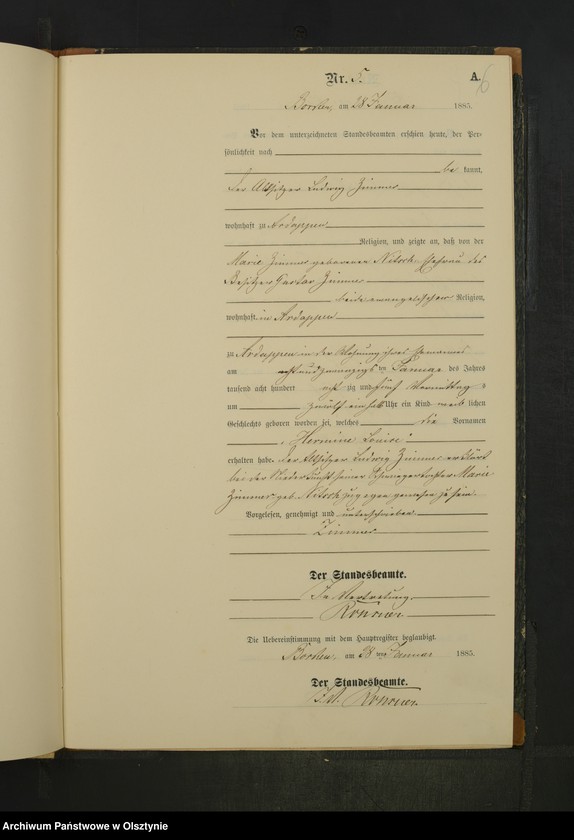 Nr. 5
A.
6
Borken, am 28 Januar 1885.
Vor dem unterzeichneten Standesbeamten erschien heute, der Per-
sönlichkeit nach
be kannt,
der Altsitzer Ludwig Zimmer
wohnhaft zu Ardappen
Religion, und zeigte an, daß von der
Marie Zimmer geborenen Nitsch Ehefrau des
Besitzer Gustav Zimmer
beide evangelischer Religion,
wohnhaft in Ardappen
zu Ardappen in der Wohnung ihres Ehemannes
am achtundzwanzigsten Januar des Jahres
tausend acht hundert acht zig und fünf Vormittags
um Uhr ein Kind weib lichen
Geschlechts geboren worden sei, welches die Vornamen
"Hermine Louise"
erhalten habe. Der Altsitzer Ludwig Zimmer erklärt
bei der Niederkunft seiner Schwiegertochter Marie
Zimmer geb. Nitsch zugegen gewesen zu sein.
Vorgelesen, genehmigt und unterschrieben
Zimmer
Der Standesbeamte.
In Vertretung
Die Uebereinstimmung mit dem Hauptregister beglaubigt.
Borken, am 28 ten Januar 1885.
Der Standesbeamte.
I.V.
Archiwum Państwowe w Olsztynie